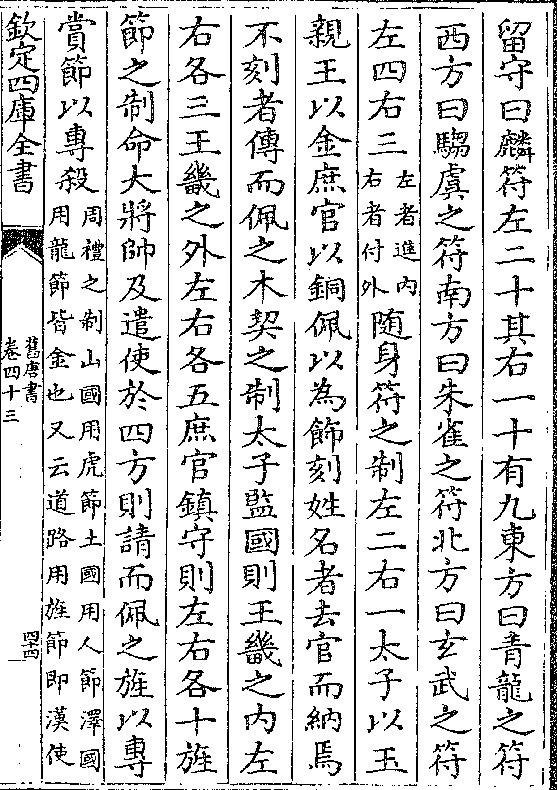 留守曰麟符左二十其右一十有九東方曰青龍之符
西方曰騶虞之符南方曰朱雀之符北方曰玄武之符
左四右三左者進内右者付外随身符之制左二右一太子以玉
親王以金庶官以銅佩以為飾刻姓名者去官而納焉
不刻者傳而佩之木契之制太子監國則王畿之内左
右各三王畿之外左右各五庶官鎮守則左右各十旌
節之制命大將帥及遣使於四方則請而佩之旌以專
賞節以專殺周禮之制山國用虎節土國用人節澤國用龍節皆金也又云道路用旌節即漢使
欽定四庫全書
舊唐書
卷四十三
四十四